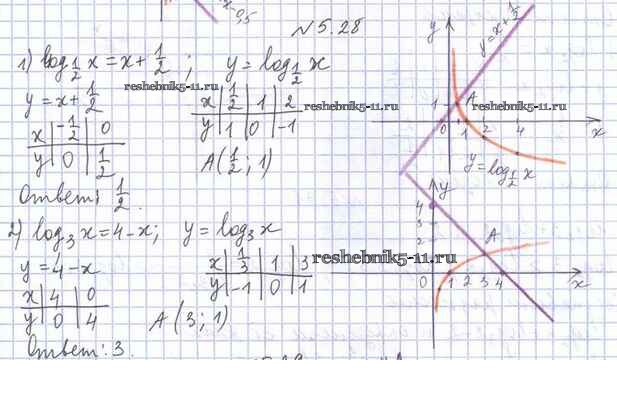 x-0,5
N 5.28
1) log_{1/2} x = x + 1/2 ; y = log_{1/2} x
y = x + 1/2
reshebnik5-11.ru
x | -1/2 | 0
y | 0 | 1/2
x | 1/2 | 1 | 2
y | 1 | 0 | -1
reshebnik5-11.ru
A (1/2 ; 1)
Ответ: 1/2.
y
y = x + 1/2
1
A
0 1 2 4 x
y = log_{1/2} x
2) log_3 x = 4 - x; y = log_3 x
y = 4 - x
x | 4 | 0
y | 0 | 4
x | 1/3 | 1 | 3
y | -1 | 0 | 1
reshebnik5-11.ru
A (3 ; 1)
Ответ: 3.
y
4
3
2
A
0 1 2 3 4 x